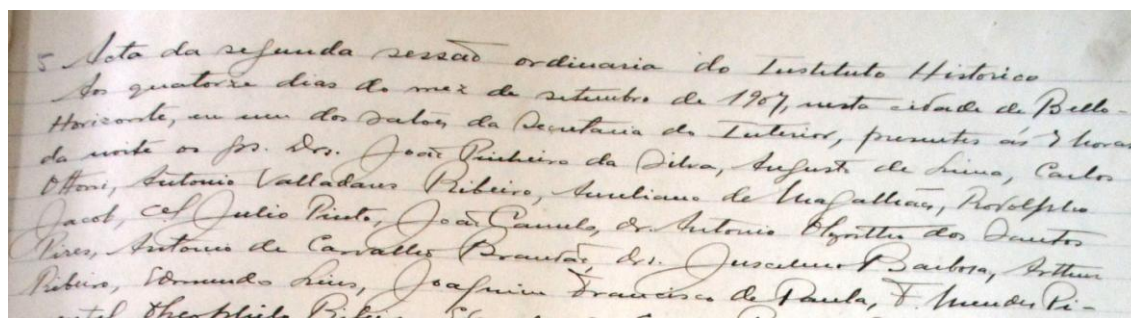 5 Acta da segunda sessão ordinaria do Instituto Historico
Aos quatorze dias do mez de setembro de 1907, nesta cidade de Bello-
Horizonte, em um dos salões da Secretaria do Interior, presentes ás 7 horas
da noite os srs. Drs. João Pinheiro da Silva, Augusto de Lima, Carlos
Ottoni, Antonio Valladares Ribeiro, Aureliano de Magalhães, Rodolpho
Jacob, cel Julio Pinto, João Camelo, dr. Antonio Olyntho dos Santos
Pires, Antonio de Carvalho Brandão, drs. Juscelino Barbosa, Arthur
Ribeiro, Edmundo Lins, Joaquim Francisco de Paula, F. Mendes Pi-
mentel, Theophilo Ribeiro,